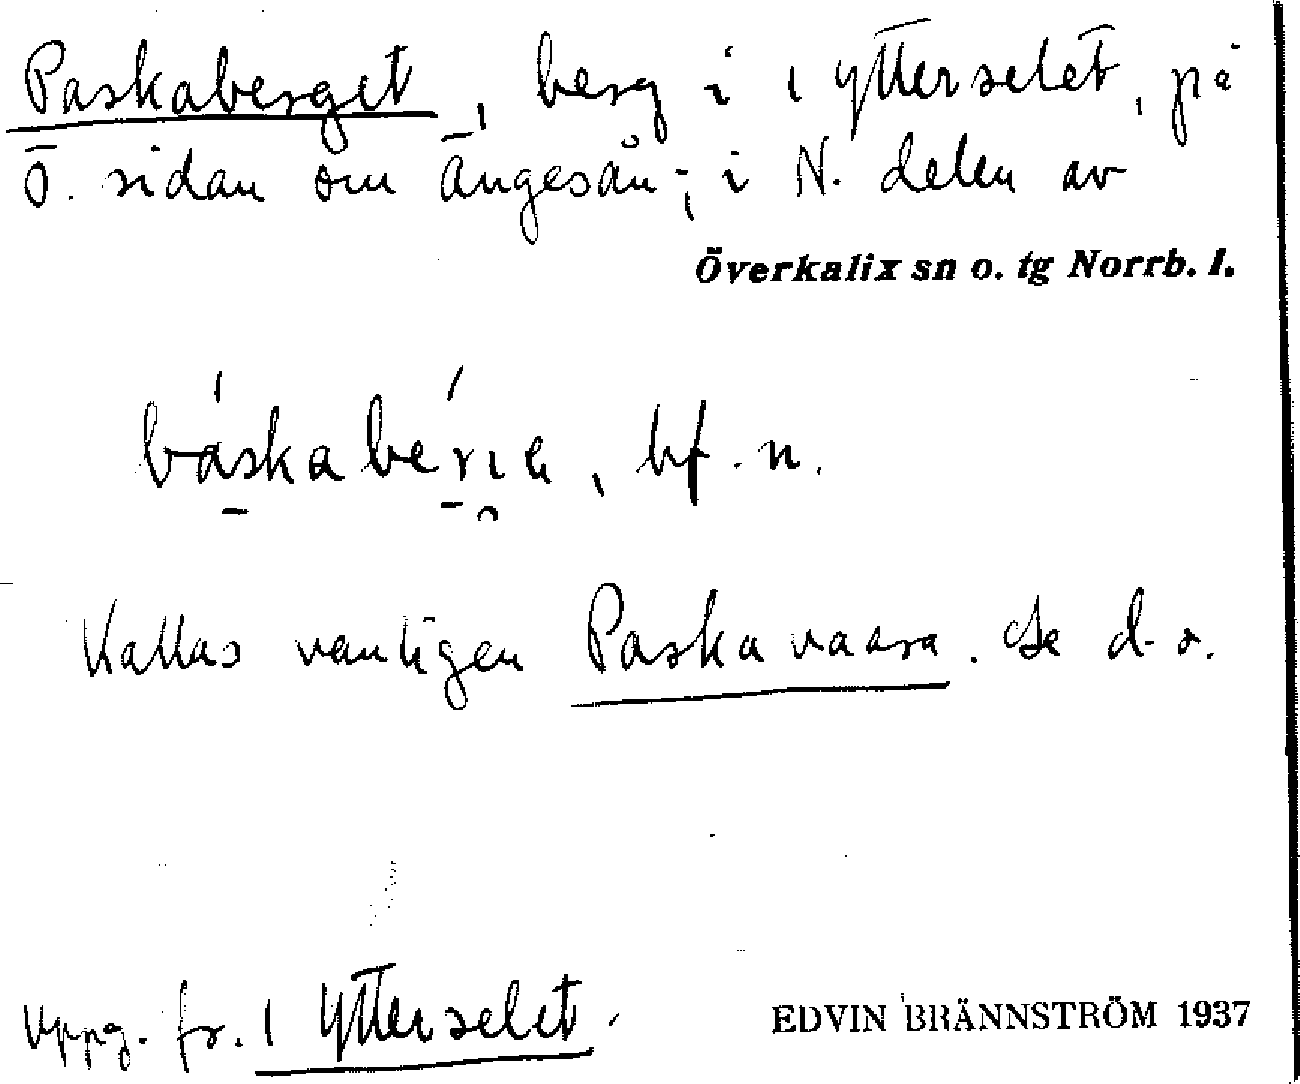 Paskaberget, berg i 1 Ytterselet, på
Ö. sidan om Ängesån; i N. delen av
Överkalix sn o. tg Norrb. l.
bf. n.
Kallas vanligen Paskavaara. Se d. o.
Uppg. fr. 1 Ytterselet.
EDVIN BRÄNNSTRÖM 1937